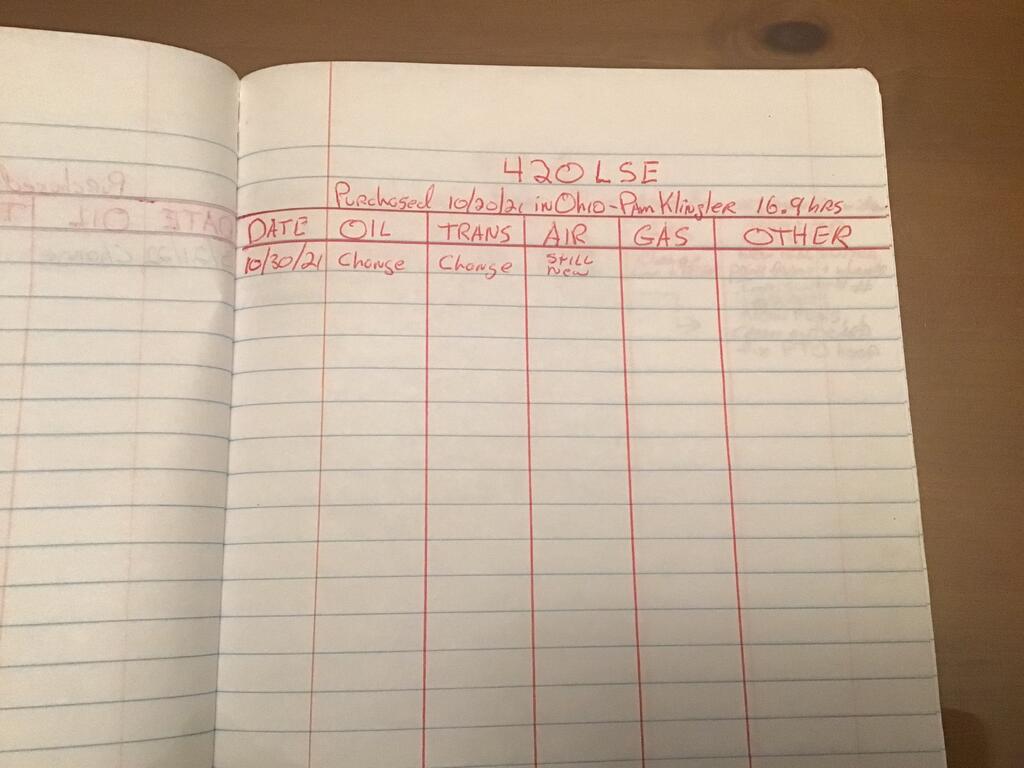 420 LSE
Purchased 10/20/21 in Ohio - Pam Klingler 16.9 hrs
DATE OIL TRANS AIR GAS OTHER
10/30/21 Change Change STILL New